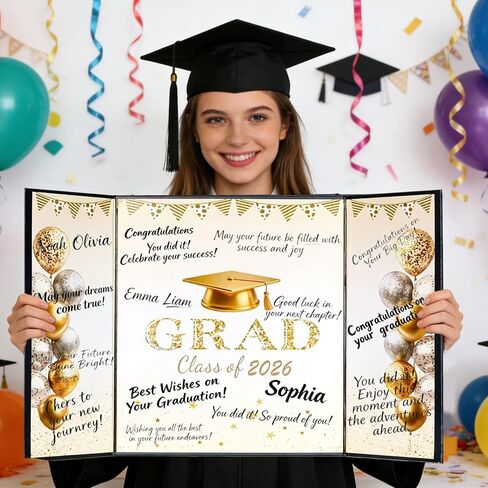 Noah Olivia
May your dreams
come true!
May your Future
Shine Bright!
Chers to
your new
journrey!
Congratulations
You did it!
Celebrate your success!
May your future be filled with
success and joy
Emma Liam
Good luck in
your next chapter!
GRAD
Class of 2026
Best Wishes on
Your Graduation!
Sophia
You did it! So proud of you!
Wishing you all the best
in your future endeavors!
Congratulations on
Your Big Day!
Congratulations on
your graduation!
You did it!
Enjoy the
moment and
the adventures
ahead